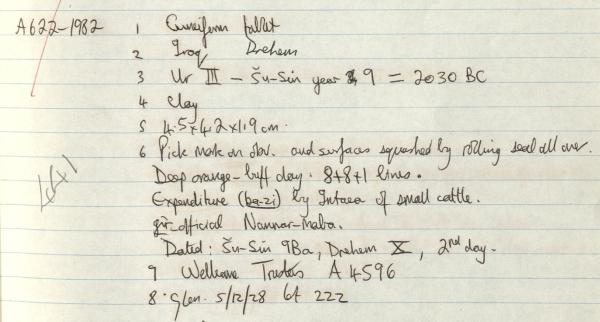 A622-1982 1 Cuneiform tablet
2 Iraq Drehem
3 Ur III – Šu-Sin year 9 = 2030 BC
4 Clay
5 4.5 x 4.2 x 1.9 cm.
6 Pick mark on obv. and surfaces squashed by rolling seal all over.
Deep orange-buff clay. 8+8+1 lines.
Expenditure (ba-zi) by Intaea of small cattle.
gìr-official Nannar-maba.
441
Dated: Šu-Sin 9Ba, Drehem X, 2nd day.
9 Wellcome Trustees A 4596
8 Glen. 5/12/28 lot 222